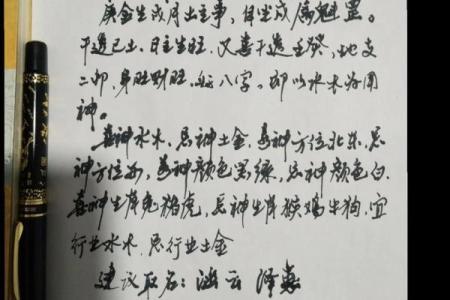 庚金生戌月出主事，自坐戌属魁罡。
干透己土，日主生旺，又喜干透壬癸，地支
二卯，身旺财旺，好八字，即以水木为用
神。
喜神水木，忌神土金，喜神方位北东，忌
神方位西，喜神颜色黑绿，忌神颜色白
喜神生肖兔猪虎，忌神生肖猴鸡牛狗，宜
行业水木，忌行业土金
建议取名：涵云